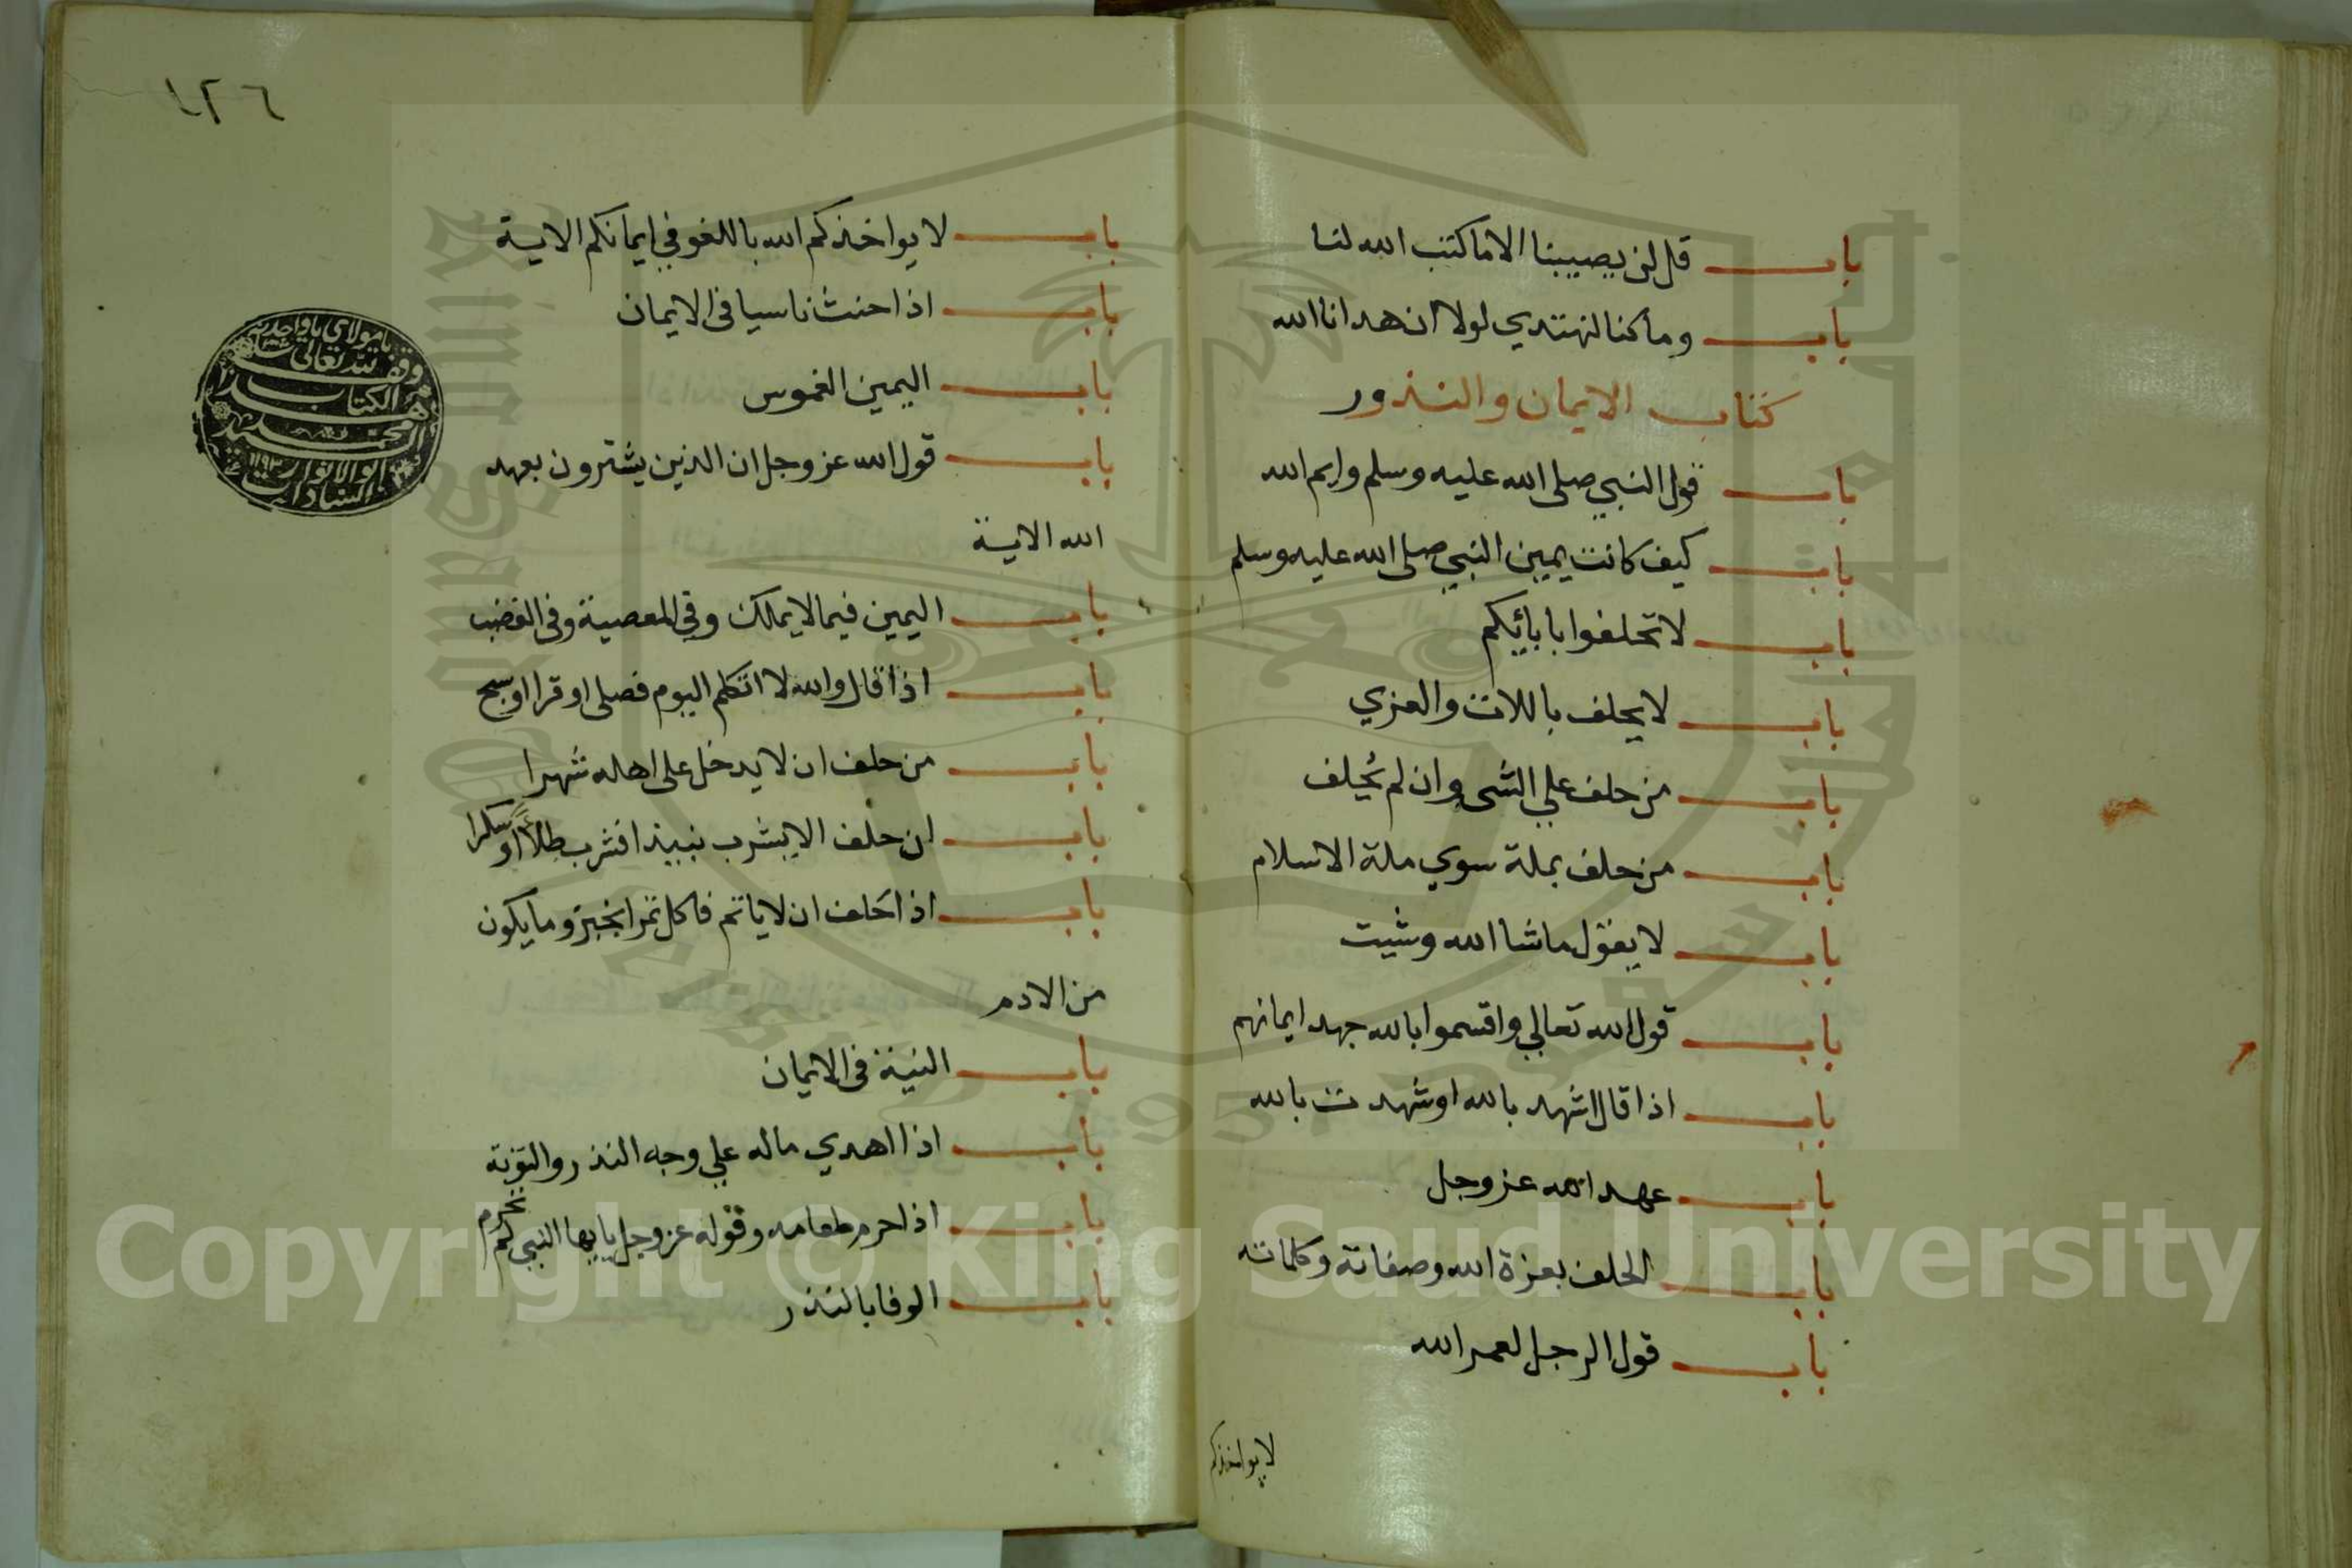 باب قل لن يصيبنا الا ما كتب الله لنا
باب وما كنا لنهتدي لولا ان هدانا الله
كتاب الايمان والنذور
باب قول النبي صلى الله عليه وسلم وايم الله
باب كيف كانت يمين النبي صلى الله عليه وسلم
باب لا تحلفوا بابائكم
باب لا يحلف باللات والعزي
باب من حلف علي الشي وان لم يُحلف
باب من حلف بملة سوي ملة الاسلام
باب لا يقول ما شا الله وشيت
باب قول الله تعالي واقسموا بالله جهد ايمانهم
باب اذا قال اشهد بالله او شهدت بالله
باب عهد الله عز وجل
باب الحلف بعزة الله وصفاته وكلماته
باب قول الرجل لعمر الله
لا يواخذكم
١٢٦
باب لا يواخذكم الله باللغو في ايمانكم الاية
باب اذا حنث ناسيا في الايمان
باب اليمين الغموس
باب قول الله عز وجل ان الذين يشترون بعهد
الله الاية
باب اليمين فيما لا يملك وفي المعصية وفي الغضب
باب اذا قال والله لا اتكلم اليوم فصلى او قرا او سبح
باب من حلف ان لا يدخل على اهله شهرا
باب ان حلف الا يشرب نبيذا فشرب طلاءً او سكرا
باب اذا حلف ان لا ياتدم فاكل تمرا بخبز وما يكون
من الادم
باب النية في الايمان
باب اذا اهدي ماله علي وجه النذر والتوبة
باب اذا حرم طعامه وقوله عز وجل يايها النبي لم تحرم
باب الوفا بالنذر
وقف لله تعالى
هذا الكتاب
Copyright © King Saud University
King Saud University
جامعة الملك سعود
1957